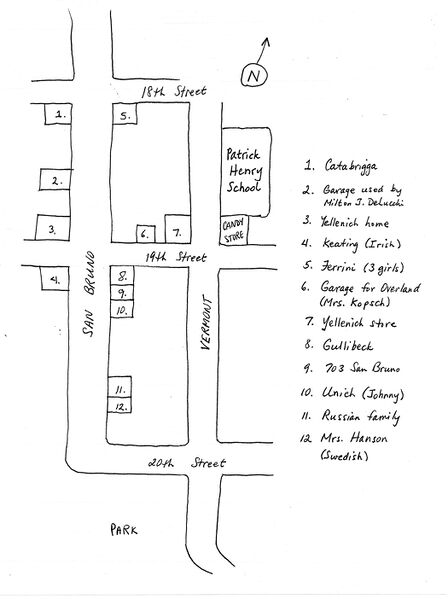 N
18th Street
1.
5.
Patrick
Henry
School
2.
3.
6.
7.
CANDY
STORE
19th Street
4.
8.
9.
10.
SAN BRUNO
VERMONT
11.
12.
20th Street
PARK
1. Catabrigga
2. Garage used by
Milton J. DeLucchi
3. Yellenich home
4. Keating (Irish)
5. Ferrini (3 girls)
6. Garage for Overland
(Mrs. Kopsch)
7. Yellenich store
8. Gullibeck
9. 703 San Bruno
10. Unich (Johnny)
11. Russian family
12 Mrs. Hanson
(Swedish)